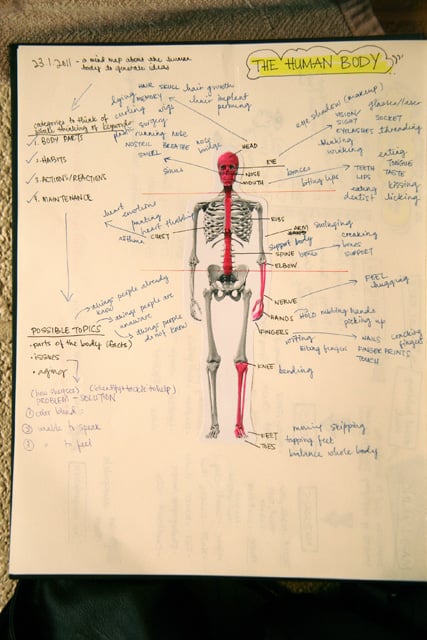 23.1.2011 - a mind map about the human
body to generate ideas
THE HUMAN BODY
categories to think of
1. BODY PARTS
2. HABITS
3. ACTIONS/REACTIONS
4. MAINTENANCE
HAIR SKULL hair growth
dying MEMORY hair implant
curling wigs perming
surgery
running nose
NOSTRIL BREATHE nose
bridge
SMELL
HEAD
EYE
NOSE
MOUTH
eye shadow (makeup)
glasses/laser
VISION/
SIGHT
SOCKET
EYELASHES threading
blinking
winking
braces
TEETH
LIPS
biting lips
eating
TONGUE
TASTE
eating
dentist
kissing
licking
heart emotions
heart throbbing
asthma
CHEST
RIBS
ARM
swinging
support body
SPINE
bones
creaking
bones
SUPPORT
ELBOW
NERVE
FEEL
hugging
HANDS
HOLD rubbing hands
picking up
FINGERS
writing
biting finger
NAILS
FINGER PRINTS
TOUCH
cracking
fingers
KNEE
bending
FEET
TOES
moving skipping
tapping feet
balance whole body
things people already
know
things people are
unaware
things people
do not know
POSSIBLE TOPICS
- parts of the body (facts)
- issues
- aging
PROBLEM - SOLUTION
① color blind
② unable to speak
③ " to feel